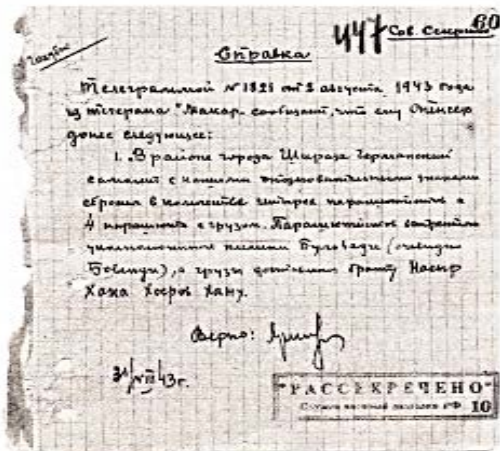 447 Сов. Секретно 60
Справка
Телеграммой № 1821 от 2 августа 1943 года
из Тегерана "Макар" сообщает, что ему
донес следующее:
1. В районе города Шираза Германский
самолет с нашими опознавательными знаками
сбросил в количестве парашютистов и
4 парашюта с грузом. Парашютистов встретили
племени (очевидно
), а грузы доставлены брату Насыр
Хана Хосров Хану.
Верно:
31/VIII 43г.
"РАССЕКРЕЧЕНО"
Служба внешней разведки РФ 10